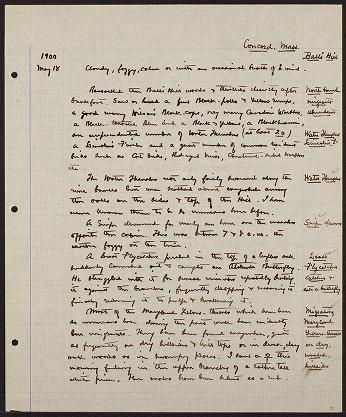 Concord, Mass.
1900
Ball's Hill
May 18
Cloudy, foggy, calm or with an occasional breath of E. wind.
Ransacked the Ball's Hill woods & thickets directly after
breakfast. Saw or heard a few Black-polls & Yellow-rumps,
a good many Wilson's Black-caps, very many Canadian Warblers,
a Black & Yellow, a Blackburnian,
an unprecedented number of Water Thrushes (at least 20)
a Lincoln's Finch and a great number of common resident
birds such as Cat birds, Red-eyed Vireos, Chestnut-sided Warblers
etc.
North bound
migrants
abundant
Water Thrushes
Lincoln's F.
The Water Thrushes not only fairly swarmed along the
river banks but were scattered about everywhere among
the oaks on the sides & top of the hill. I have
never known them to be so numerous here before.
Water Thrushes
A Snipe drummed for nearly an hour over the meadows
opposite the cabin. This was between 7 & 8 a.m. the
weather foggy at the time.
Snipe drumming
A Least Flycatcher perched in the top of a leafless oak
suddenly launched out & caught an Atalanta Butterfly.
He struggled with it for several minutes repeatedly beating
it against the branches, frequently dropping & recovering it
finally reducing it to pulp & swallowing it.
Least
Flycatcher
catches &
eats a butterfly
Most of the Maryland Yellow-throats which have been
so numerous here during the past week have evidently
been migrants. They have been found everywhere, quite
as frequently on dry hillsides & hill tops or in dense dry
oak woods as in swampy places. I saw a ♂ this
morning feeding in the upper branches of a rather tall
white pine. The males have been silent as a rule.
Migrating
Maryland
Yellow-throats
on dry,
wooded,
hillsides